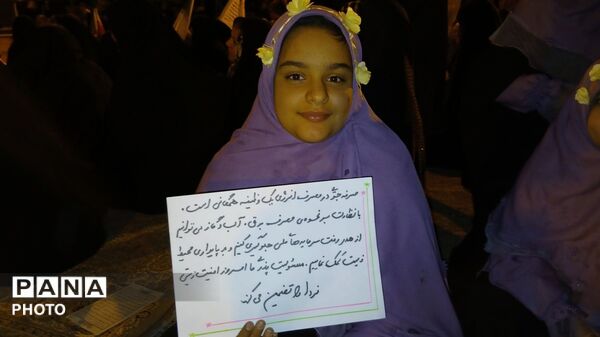 صرفه جویی در مصرف انرژی یک وظیفه همگانی است.
با نظارت به نحوه ی مصرف برق، آب و گاز می توانیم
از هدر رفت سرمایه های ملی جلوگیری کنیم و به پایداری محیط
زیست کمک نماییم. مسئولیت پذیری ما امروز امنیت زیستی
فردا را تضمین می کند
PANA
PHOTO